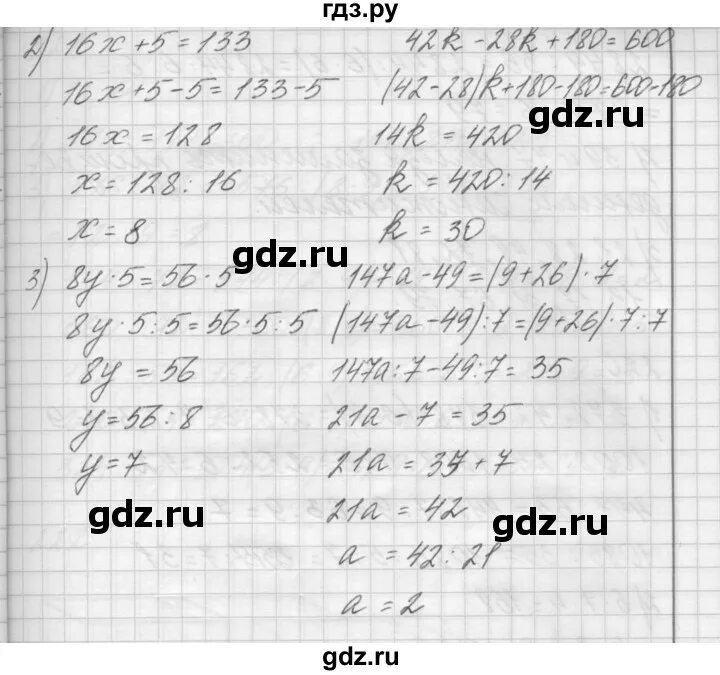 гдз.ру
2) 16x + 5 = 133
16x + 5 - 5 = 133 - 5
16x = 128
x = 128 : 16
x = 8
42k - 28k + 180 = 600
(42 - 28)k + 180 - 180 = 600 - 180
14k = 420
k = 420 : 14
k = 30
gdz.ru
gdz.ru
3) 8y · 5 = 56 · 5
8y · 5 : 5 = 56 · 5 : 5
8y = 56
y = 56 : 8
y = 7
147a - 49 = (9 + 26) · 7
(147a - 49) : 7 = (9 + 26) · 7 : 7
147a : 7 - 49 : 7 = 35
21a - 7 = 35
21a = 35 + 7
21a = 42
a = 42 : 21
a = 2
gdz.ru
gdz.ru
gdz.ru